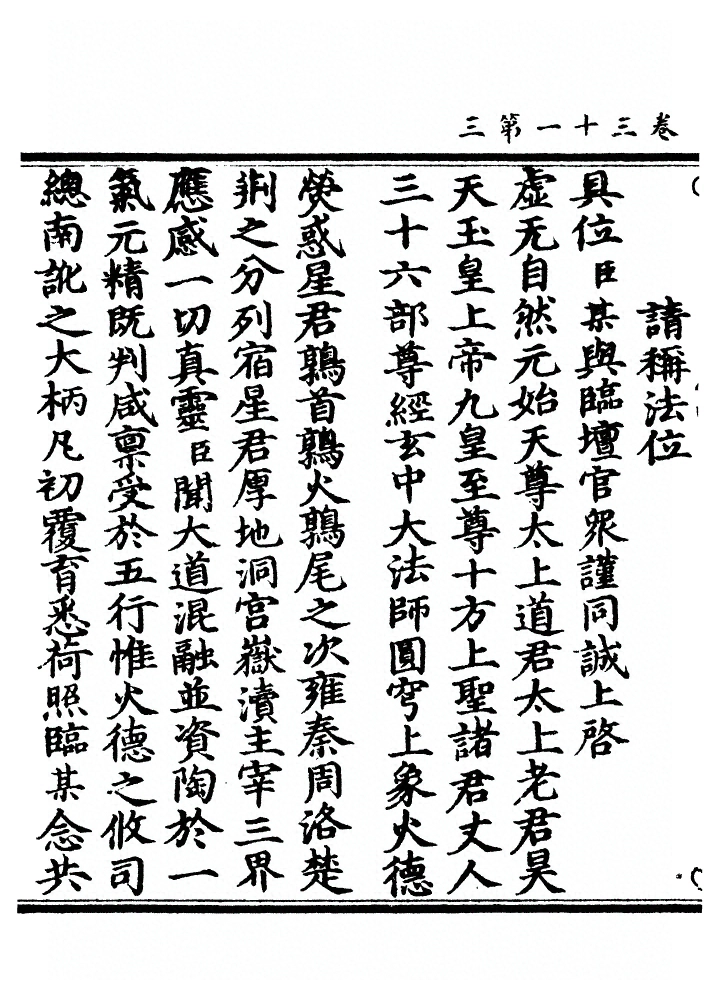 卷三十一第三
請稱法位
具位臣某與臨壇官眾謹同誠上啓
虛无自然元始天尊太上道君太上老君昊
天玉皇上帝九皇至尊十方上聖諸君丈人
三十六部尊經玄中大法師圓穹上象火德
熒惑星君鶉首鶉火鶉尾之次雍秦周洛楚
荆之分列宿星君厚地洞宮嶽瀆主宰三界
應感一切真靈臣聞大道混融並資陶於一
氣元精既判咸稟受於五行惟火德之攸司
總南訛之大柄凡初覆育悉荷照臨某念共